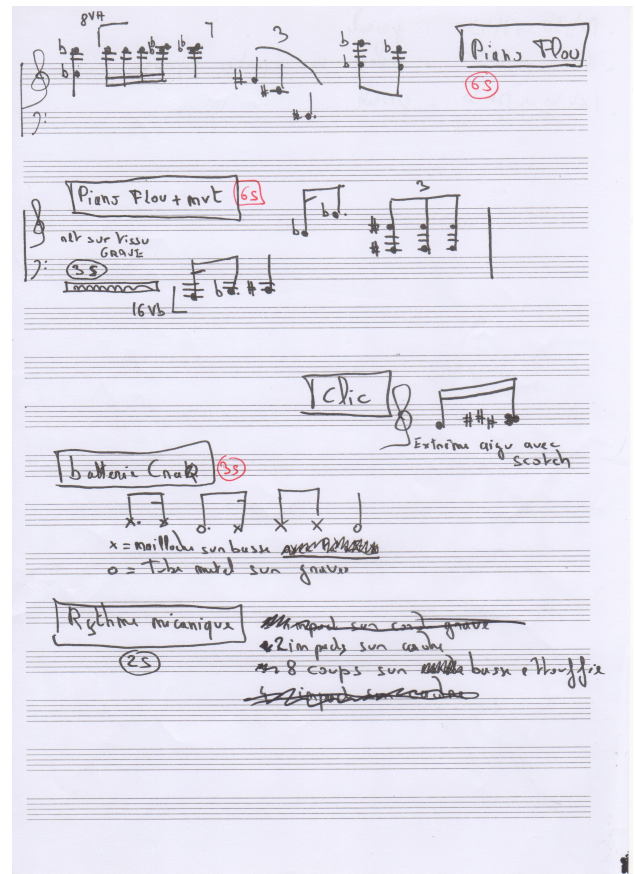 8VA
3
Piano Flou
6s
Piano Flou + mvt 6s
3
sur tissu
GRAVE
3s
16Vb
Clic
Extrême aigu avec
scotch
batterie 3s
x = mailloche sur basse
o = Tube metal sur graves
Rythme mécanique
2s
2 impacts sur cadre
8 coups sur basse etouffée